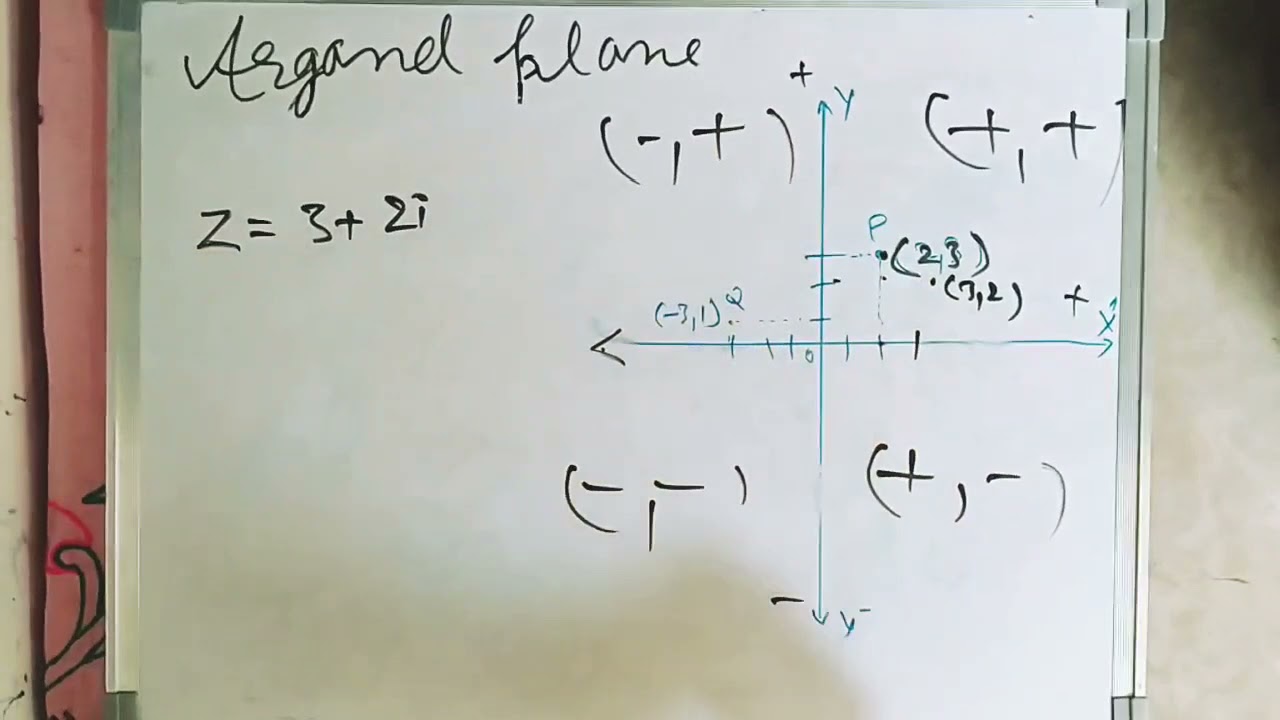 Argand plane
+
Y
(-,+) (+,+)
Z = 3+2i
P
(2,3)
(3,2) +
X
(-3,1) Q
0
(-,-) (+,-)
-
Y-